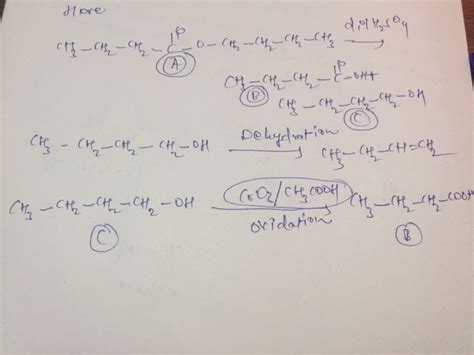 Here
CH3-CH2-CH2-C(=O)-O-CH2-CH2-CH2-CH3 dil H2SO4
(A)
CH3-CH2-CH2-C(=O)-OH +
(B) CH3-CH2-CH2-CH2-OH
(C)
CH3-CH2-CH2-CH2-OH Dehydration CH3-CH2-CH=CH2
CH3-CH2-CH2-CH2-OH CrO3/CH3COOH CH3-CH2-CH2-COOH
oxidation
(C) (B)